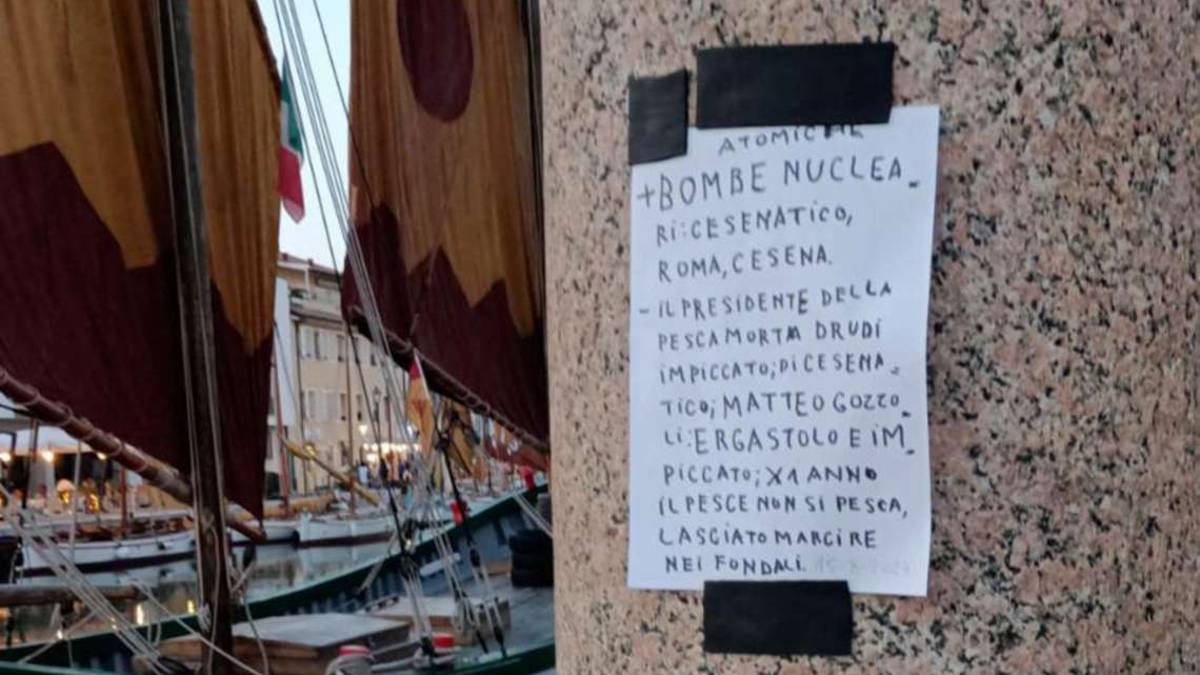 ATOMICHE
+BOMBE NUCLEA_
RI:CESENATICO,
ROMA, CESENA.
-IL PRESIDENTE DELLA
PESCA MORTA DRUDI
IMPICCATO; DI CESENA_
TICO; MATTEO GOZZO_
LI: ERGASTOLO E IM_
PICCATO; X1 ANNO
IL PESCE NON SI PESCA,
LASCIATO MARCIRE
NEI FONDALI.